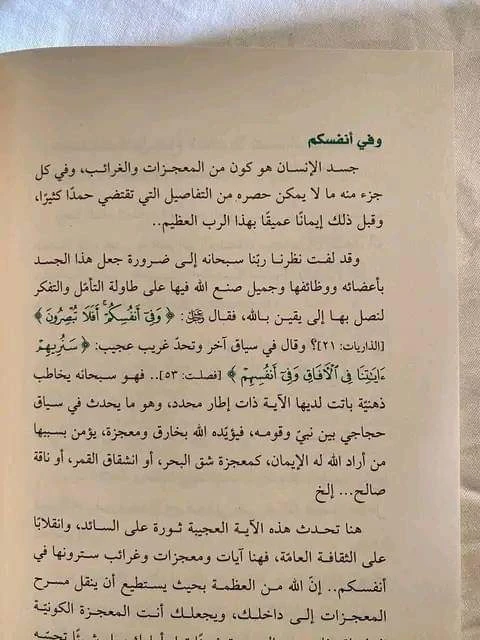 وفي أنفسكم
جسد الإنسان هو كون من المعجزات والغرائب، وفي كل
جزء منه ما لا يمكن حصره من التفاصيل التي تقتضي حمدًا كثيرًا،
وقبل ذلك إيمانًا عميقًا بهذا الرب العظيم..
وقد لفت نظرنا ربّنا سبحانه إلى ضرورة جعل هذا الجسد
بأعضائه ووظائفها وجميل صنع الله فيها على طاولة التأمّل والتفكر
لنصل بها إلى يقين بالله، فقال ﷻ: ﴿ وَفِي أَنفُسِكُمْ ۚ أَفَلَا تُبْصِرُونَ ﴾
[الذاريات: ٢١]؟ وقال في سياق آخر وتحدّ غريب عجيب: ﴿ سَنُرِيهِمْ
ءَايَٰتِنَا فِي الْآفَاقِ وَفِي أَنفُسِهِمْ ﴾ [فصلت: ٥٣].. فهو سبحانه يخاطب
ذهنيّة باتت لديها الآية ذات إطار محدد، وهو ما يحدث في سياق
حجاجي بين نبيّ وقومه، فيؤيّده الله بخارق ومعجزة، يؤمن بسببها
من أراد الله له الإيمان، كمعجزة شق البحر، أو انشقاق القمر، أو ناقة
صالح... إلخ
هنا تحدث هذه الآية العجيبة ثورة على السائد، وانقلابًا
على الثقافة العامّة، فهنا آيات ومعجزات وغرائب سترونها في
أنفسكم.. إنّ الله من العظمة بحيث يستطيع أن ينقل مسرح
المعجزات إلى داخلك، ويجعلك أنت المعجزة الكونيّة